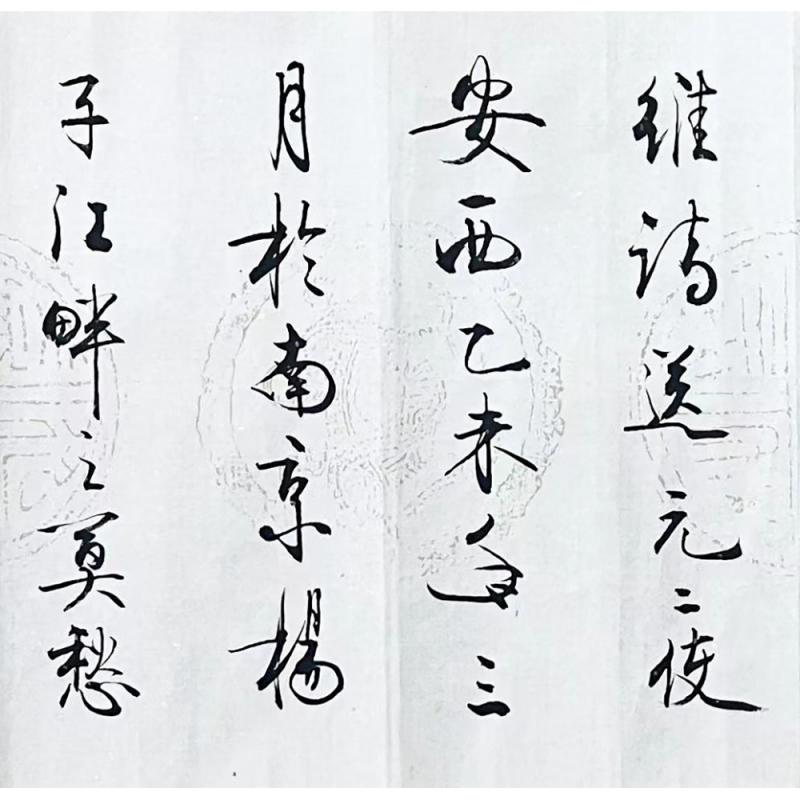 维诗送元二使
安西乙未年三
月於南京楊
子江畔之莫愁